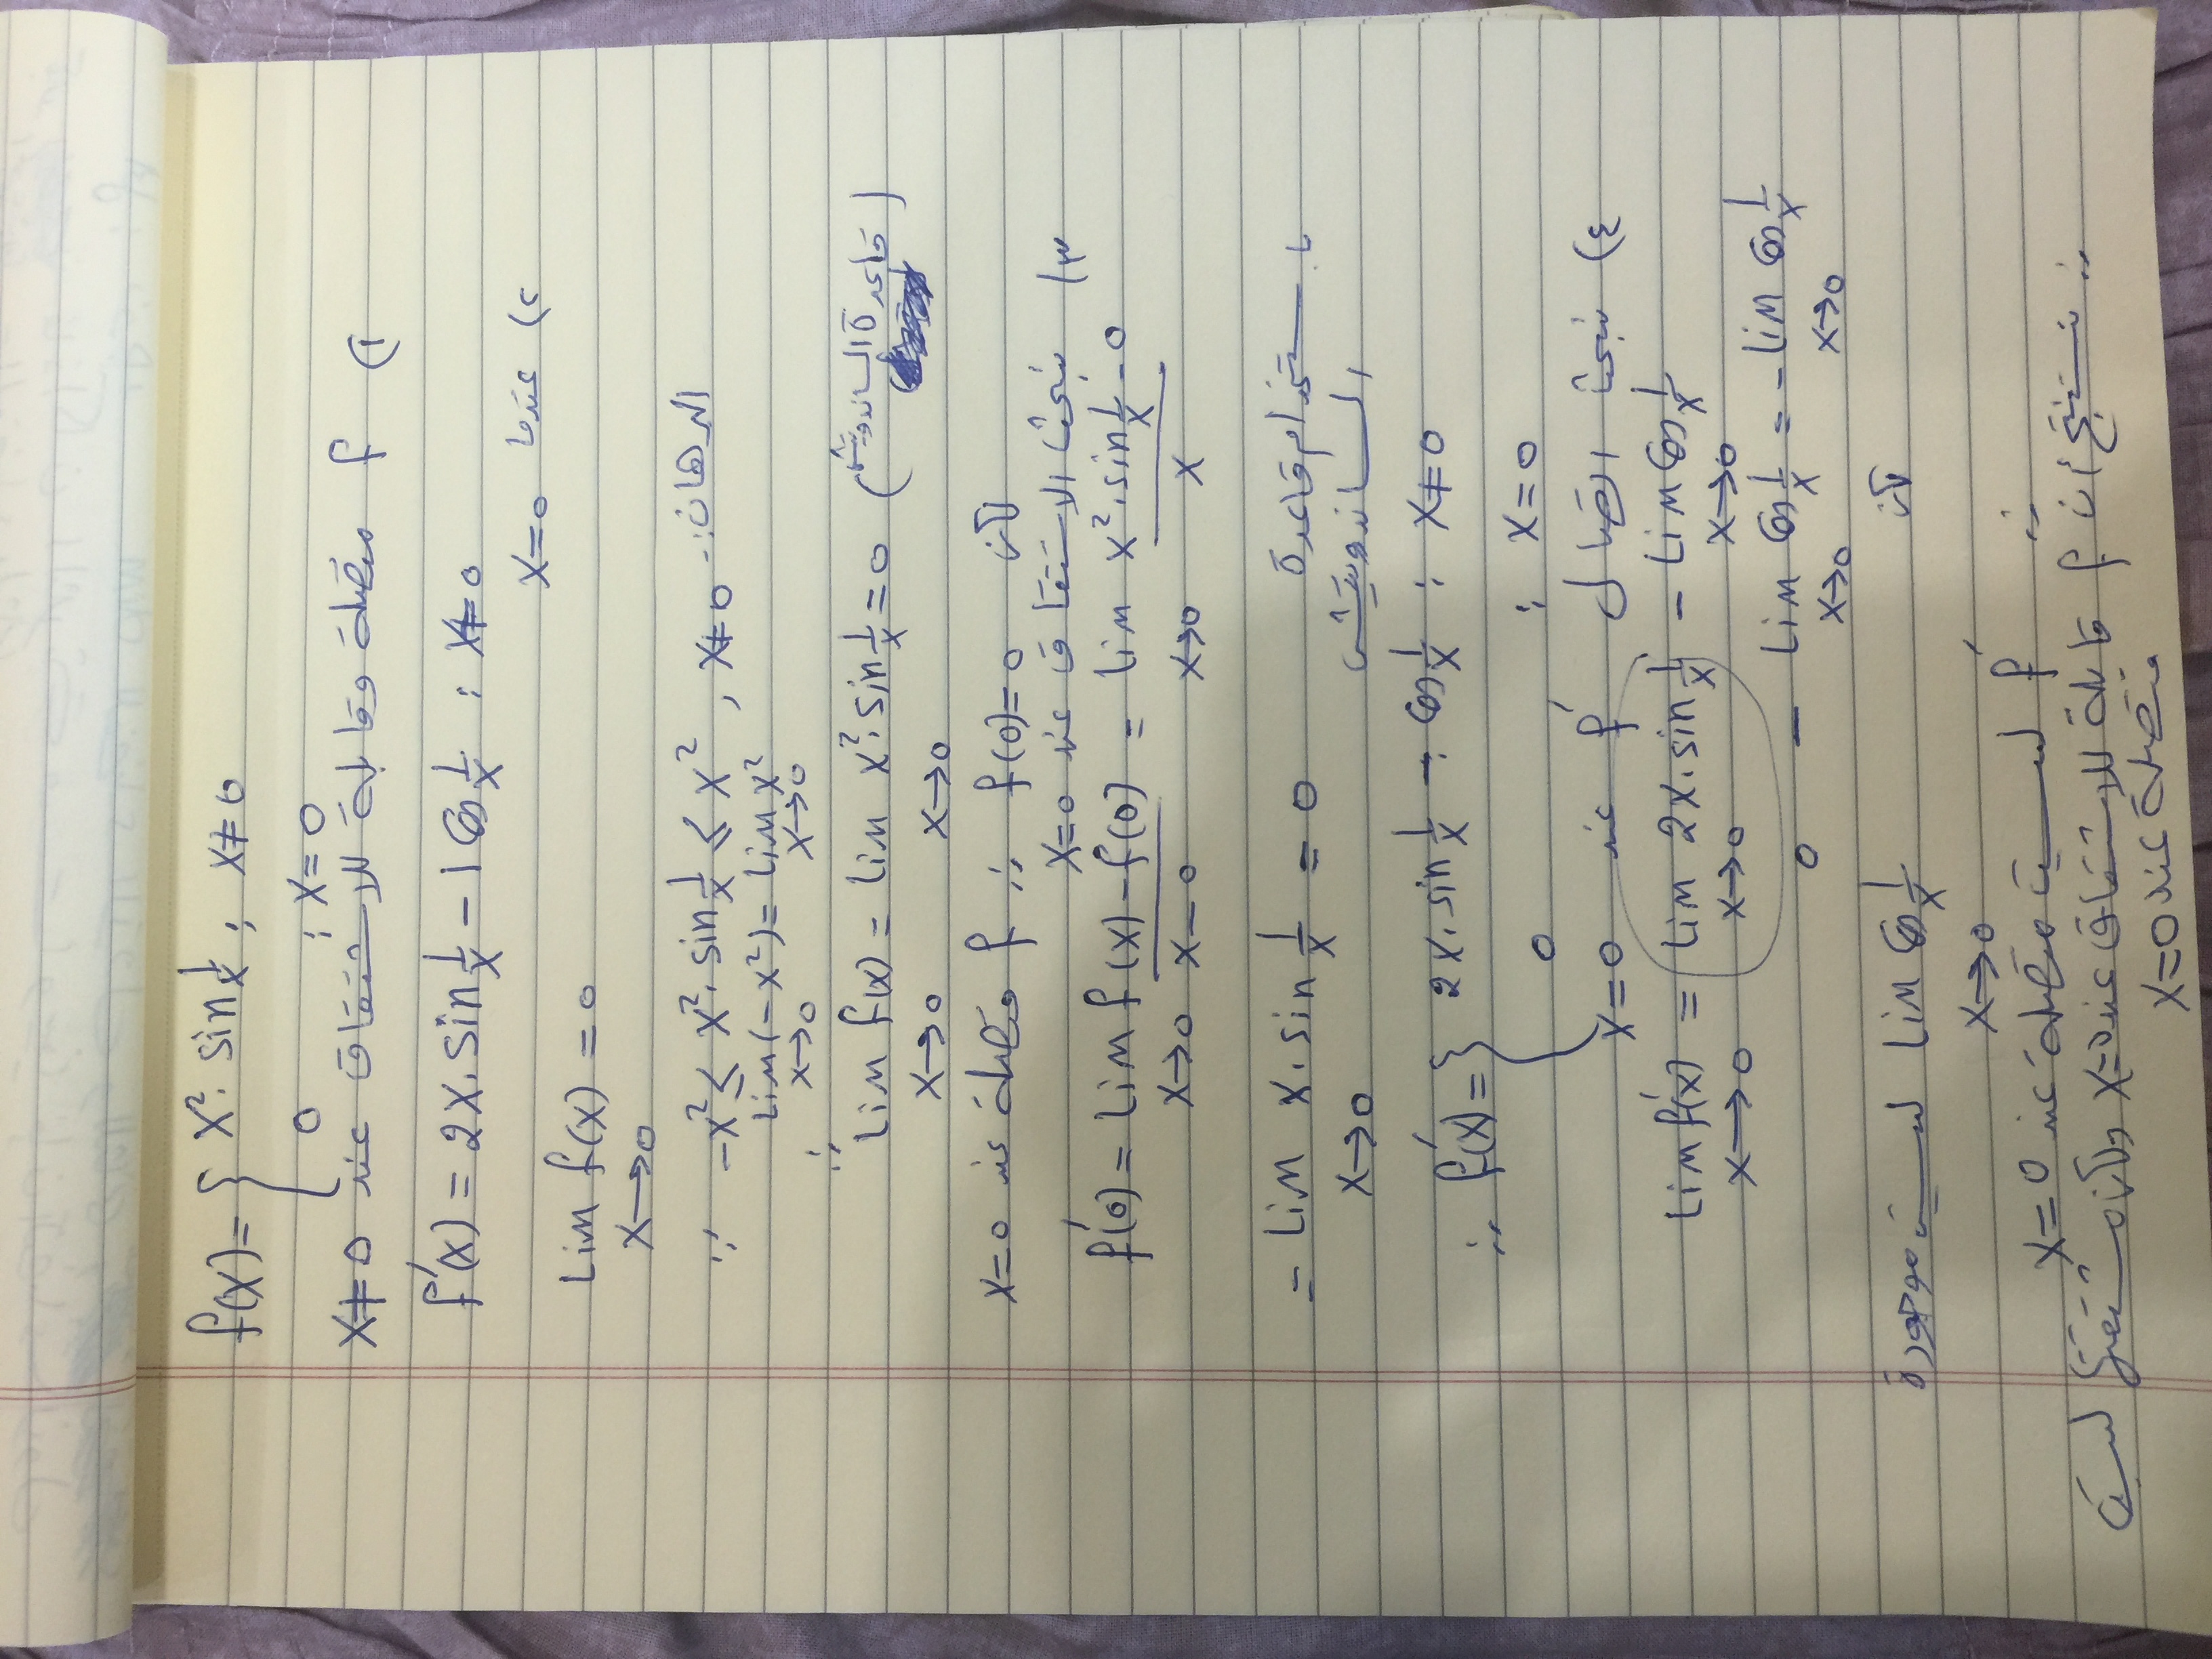 f(x) = { x². sin 1/x ; x ≠ 0
0 ; x = 0
١) f متصلة وقابلة للاشتقاق عند x ≠ 0
f'(x) = 2x. sin 1/x - 1 cos 1/x ; x ≠ 0
٢) عندما x = 0
Lim f(x) = 0
x→0
البرهان:-
∵ -x² ≤ x². sin 1/x ≤ x² , x ≠ 0
Lim(-x²) = Lim x²
x→0 x→0
∴ Lim f(x) = Lim x². sin 1/x = 0 (قاعدة الساندويتش)
x→0 x→0
لأن f(0) = 0 ∴ f متصلة عند x = 0
٣) نبحث الاشتقاق عند x = 0
f'(0) = Lim f(x) - f(0) / x - 0 = Lim x². sin 1/x - 0 / x
x→0 x→0
= Lim x. sin 1/x = 0 باستخدام قاعدة
x→0 الساندويتش
∴ f'(x) = { 2x. sin 1/x - cos 1/x ; x ≠ 0
0 ; x = 0
٤) نبحث اتصال f' عند x = 0
Lim f'(x) = Lim 2x. sin 1/x - Lim cos 1/x
x→0 x→0 x→0
0 - Lim cos 1/x = - Lim cos 1/x
x→0 x→0
لأن Lim cos 1/x ليست موجودة
x→0
∴ f' ليست متصلة عند x = 0
∴ نستنتج أن f قابلة للاشتقاق عند x=0 ولكن مشتقتها ليست
متصلة عند x = 0